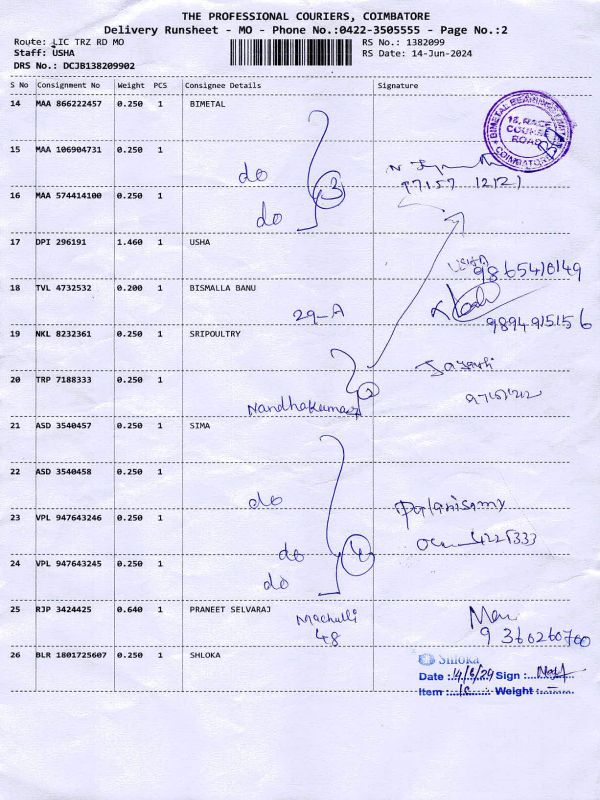 THE PROFESSIONAL COURIERS, COIMBATORE
Delivery Runsheet - MO - Phone No.:0422-3505555 - Page No.:2
Route: LIC TRZ RD MO RS No.: 1382099
Staff: USHA RS Date: 14-Jun-2024
DRS No.: DCJB138209902
S No Consignment No Weight PCS Consignee Details Signature
14 MAA 866222457 0.250 1 BIMETAL
BIMETAL BEARINGS LIMITED
18, RACE
COURSE
ROAD
COIMBATORE
15 MAA 106904731 0.250 1
do
3
97157 12121
16 MAA 574414100 0.250 1
do
17 DPI 296191 1.460 1 USHA
USHA
9865410149
18 TVL 4732532 0.200 1 BISMALLA BANU
29-A
9894915156
19 NKL 8232361 0.250 1 SRIPOULTRY
20 TRP 7188333 0.250 1
2
Nandhakumar
21 ASD 3540457 0.250 1 SIMA
22 ASD 3540458 0.250 1
do
Palanisamy
23 VPL 947643246 0.250 1
4225333
do
4
24 VPL 947643245 0.250 1
do
25 RJP 3424425 0.640 1 PRANEET SELVARAJ
48
9360260700
26 BLR 1801725607 0.250 1 SHLOKA
Shloka
Date : 14/6/24 Sign :
Item : Weight :